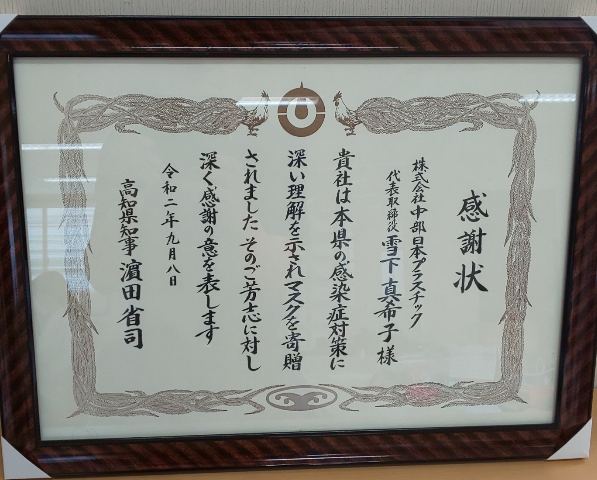 感謝状
株式会社中部日本プラスチック
代表取締役 雪下真希子様
貴社は本県の感染症対策に
深い理解を示されマスクを寄贈
されました そのご芳志に対し
深く感謝の意を表します
令和二年九月八日
高知県知事 濵田省司